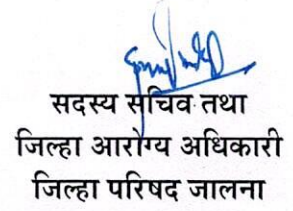 सदस्य सचिव तथा
जिल्हा आरोग्य अधिकारी
जिल्हा परिषद जालना